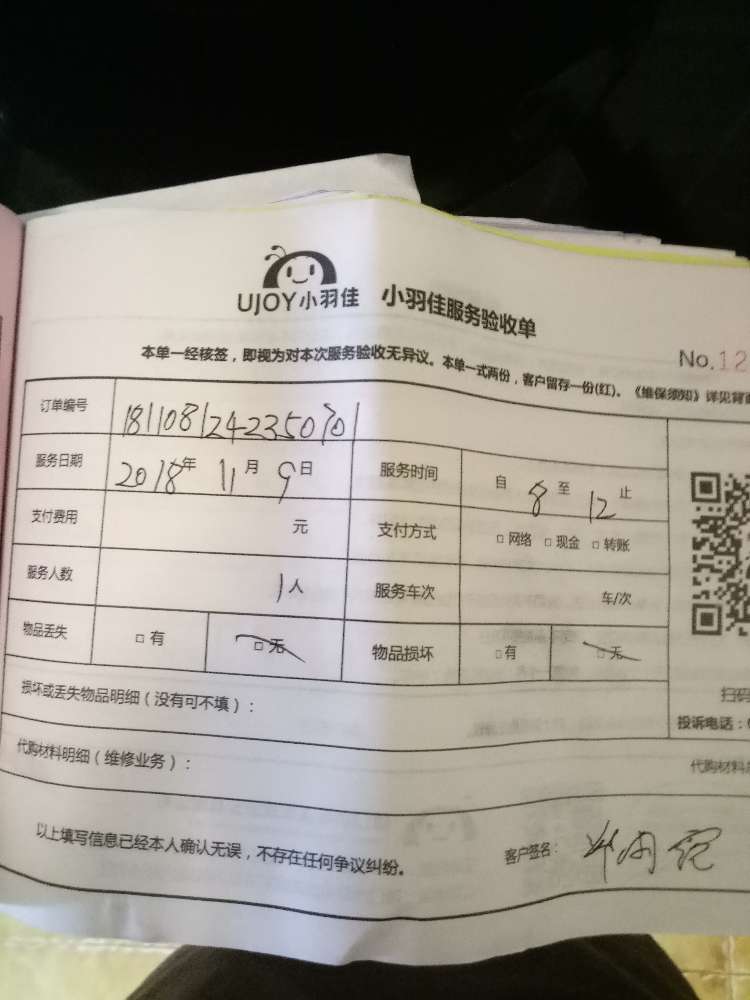 UJOY小羽佳 小羽佳服务验收单
No.12
本单一经核签，即视为对本次服务验收无异议。本单一式两份，客户留存一份(红)。《维保须知》详见背
订单编号
服务日期 2018年 11月 9日 服务时间 自 8 至 12 止
支付费用 元 支付方式 □网络 □现金 □转账
服务人数 1人 服务车次 车/次
物品丢失 □有 □无 物品损坏 □有 □无
损坏或丢失物品明细（没有可不填）：
扫码
投诉电话：
代购材料明细（维修业务）：
代购材料
以上填写信息已经本人确认无误，不存在任何争议纠纷。
客户签名：